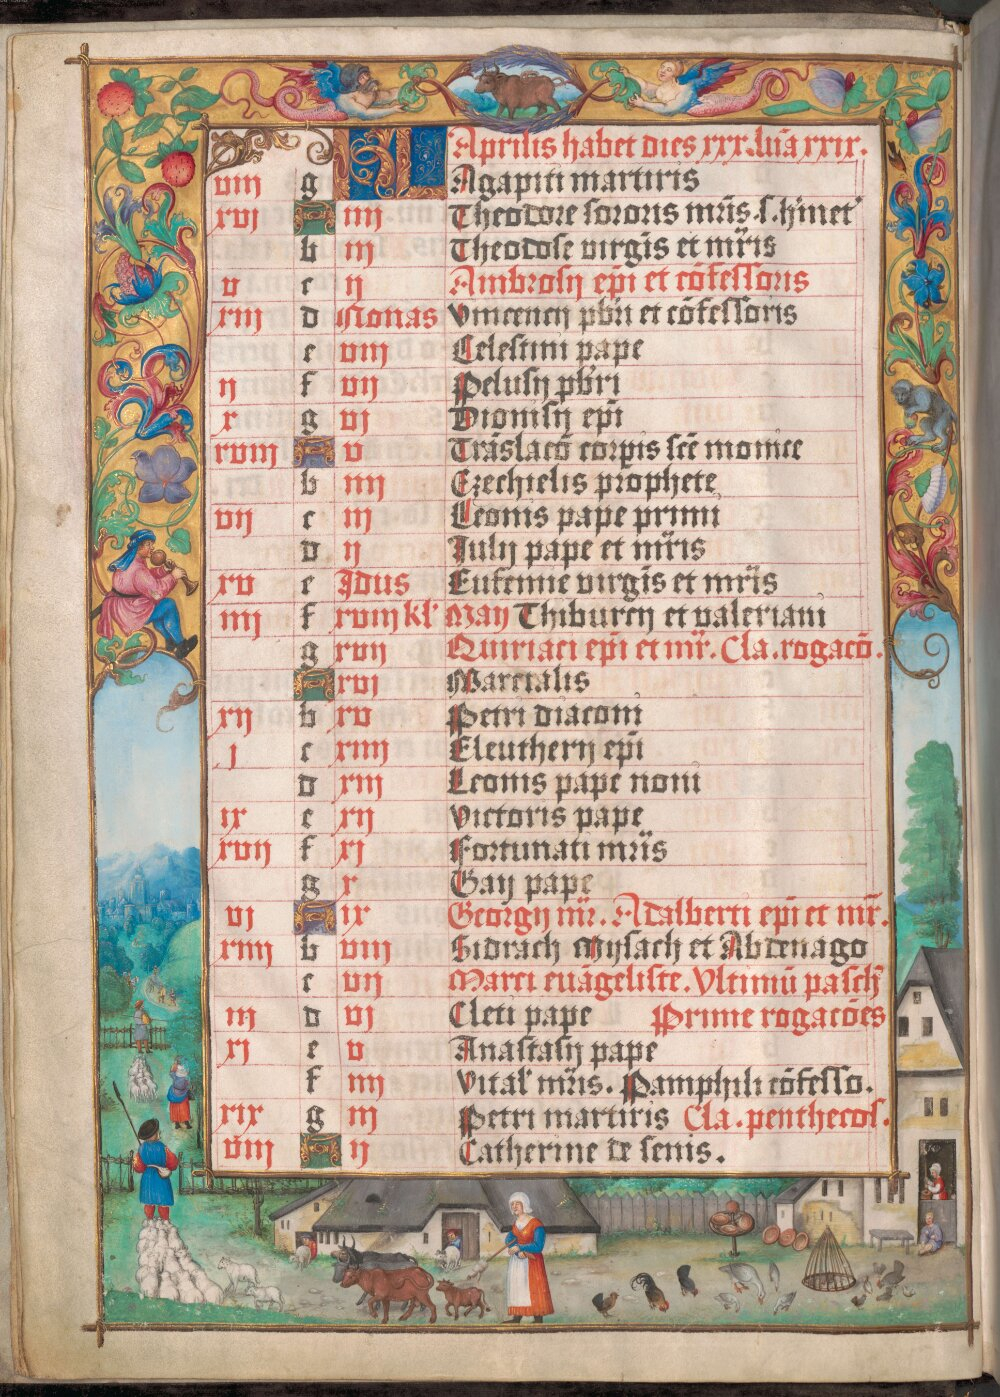 KL Aprilis habet dies xxx. lūa xxix.
viij g Agapiti martiris
xvj A iiij Theodore sororis mr̄is. s. h'met'
b iij Theodose virgīs et mr̄is
v c ij Ambrosij ep̄i et cōfessoris
xiij d Nonas Vincencij pb̄ri et cōfessoris
e viij Celestini pape
ij f vij Pelusij pb̄ri
x g vj Dionisij ep̄i
xviij A v Trāslacō corp̄is sc̄e monice
b iiij Ezechielis prophete
vij c iij Leonis pape primi
d ij Iulij pape et mr̄is
xv e Idus Eufemie virgīs et mr̄is
iiij f xviij kl' Maij Thiburcij et valeriani
g xvij Quiriaci ep̄i et mr̄. Cla. rogacō.
A xvj Marcialis
xij b xv Petri diaconi
j c xiiij Eleutherij ep̄i
d xiij Leonis pape noni
ix e xij Victoris pape
xvij f xj Fortunati mr̄is
g x Gaij pape
vj A ix Georgij mr̄. Adalberti ep̄i et mr̄.
xiiij b viij Sidrach Mysach et Abdenago
c vij Marci evāgeliste. Vltimū pasch'
iij d vj Cleti pape Prime rogacōes
xj e v Anastasij pape
f iiij Vital' mr̄is. Pamphili cōfesso.
xix g iij Petri martiris Cla. penthecos.
viij A ij Catherine de senis.